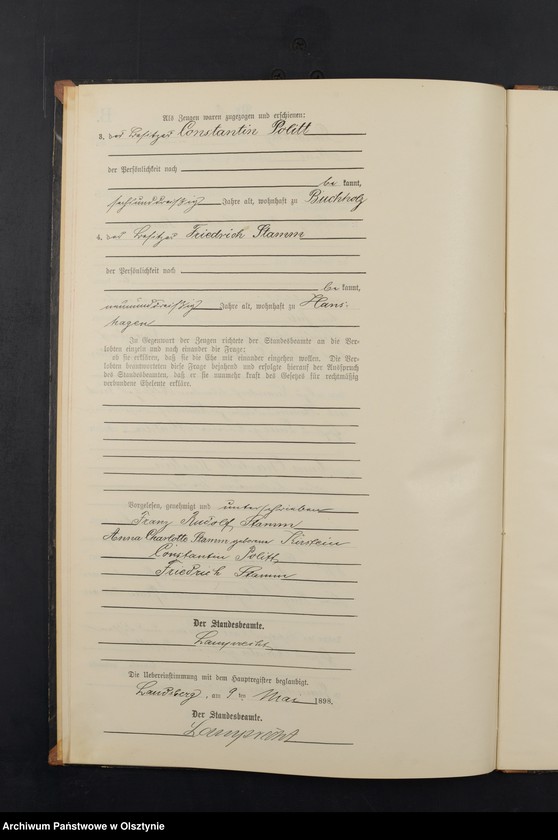 Als Zeugen waren zugezogen und erschienen:
3. der Besitzer Constantin Politt
der Persönlichkeit nach
be kannt,
sechsunddreißig Jahre alt, wohnhaft zu Buchholz
4. der Besitzer Friedrich Stamm
der Persönlichkeit nach
be kannt,
neununddreißig Jahre alt, wohnhaft zu Hans-
hagen
In Gegenwart der Zeugen richtete der Standesbeamte an die Ver-
lobten einzeln und nach einander die Frage:
ob sie erklären, daß sie die Ehe mit einander eingehen wollen. Die Ver-
lobten beantworteten diese Frage bejahend und erfolgte hierauf der Ausspruch
des Standesbeamten, daß er sie nunmehr kraft des Gesetzes für rechtmäßig
verbundene Eheleute erkläre.
Vorgelesen, genehmigt und unterschrieben
Franz Rudolf Stamm
Anna Charlotte Stamm geborene Kirstein
Constantin Politt
Friedrich Stamm
Der Standesbeamte.
Lamprecht
Die Uebereinstimmung mit dem Hauptregister beglaubigt.
Landsberg, am 9 ten Mai 1898.
Der Standesbeamte.
Lamprecht
Archiwum Państwowe w Olsztynie